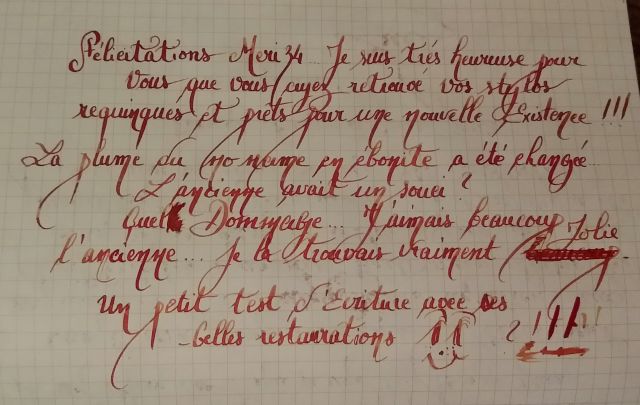 Félicitations Meri34... Je suis très heureuse pour
vous que vous ayez retrouvé vos stylos
requinqués et prêts pour une nouvelle Existence !!!
La plume du no name en ébonite a été changée...
L'ancienne avait un souci ?
Quel Dommage... J'aimais beaucoup
l'ancienne... Je la trouvais vraiment Jolie.
Un petit test d'Ecriture avec ses
belles restaurations ? !!!!!